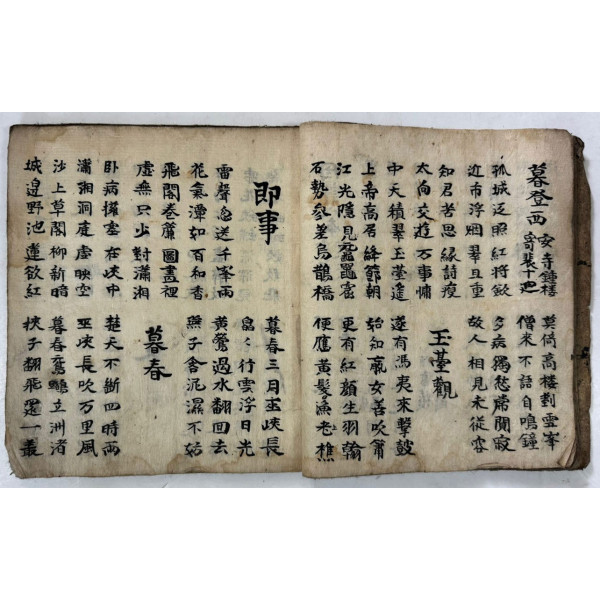 暮登西安寺鐘樓寄裴十迪
莫倚高樓對雪峯
僧來不語自鳴鐘
孤城返照紅將斂
近市浮烟翠且重
多病獨愁常闃寂
故人相見未從容
知君苦思緣詩瘦
太向交遊万事慵
玉臺觀
中天積翠玉臺遙
上帝高居絳節朝
遂有馮夷來擊鼓
始知嬴女善吹簫
江光隱見黿鼉窟
石勢參差烏鵲橋
更有紅顏生羽翰
便應黃髮魚老樵
即事
暮春三月巫峽長
皛皛行雲浮日光
雷聲忽送千峯雨
花氣渾如百和香
黃鶯過水翻回去
燕子含泥濕不妨
飛閣卷簾圖畫裡
虛無只少對瀟湘
暮春
臥病擁塞在峽中
瀟湘洞庭虛映空
楚天不斷四時雨
巫峽長吹万里風
沙上草閣柳新暗
城邊野池蓮欲紅
暮春鴛鷺立洲渚
挾子翻飛還一叢